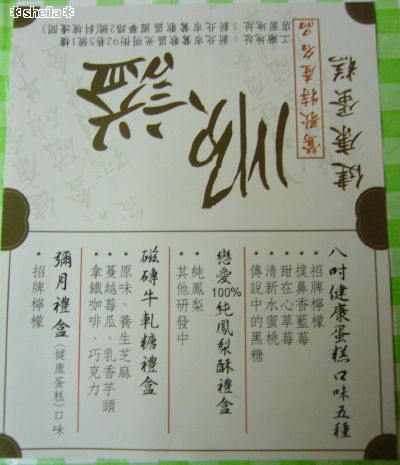 健康蛋糕
鶯歌特產名品
順謚
店面地址：新北市鶯歌區國華路2號(斜坡邊間)
工廠地址：新北市鶯歌區光明街92巷5號1樓
八吋健康蛋糕口味五種
•招牌檸檬
•撲鼻香藍莓
•甜在心草莓
•清新水蜜桃
•傳說中的黑糖
戀愛100%純鳳梨酥禮盒
•純鳳梨
•其他研發中
磁磚牛軋糖禮盒
•原味、養生芝麻
•蔓越莓南瓜、乳香芋頭
•拿鐵咖啡、巧克力
彌月禮盒(健康蛋糕)口味
•招牌檸檬
*sheila*